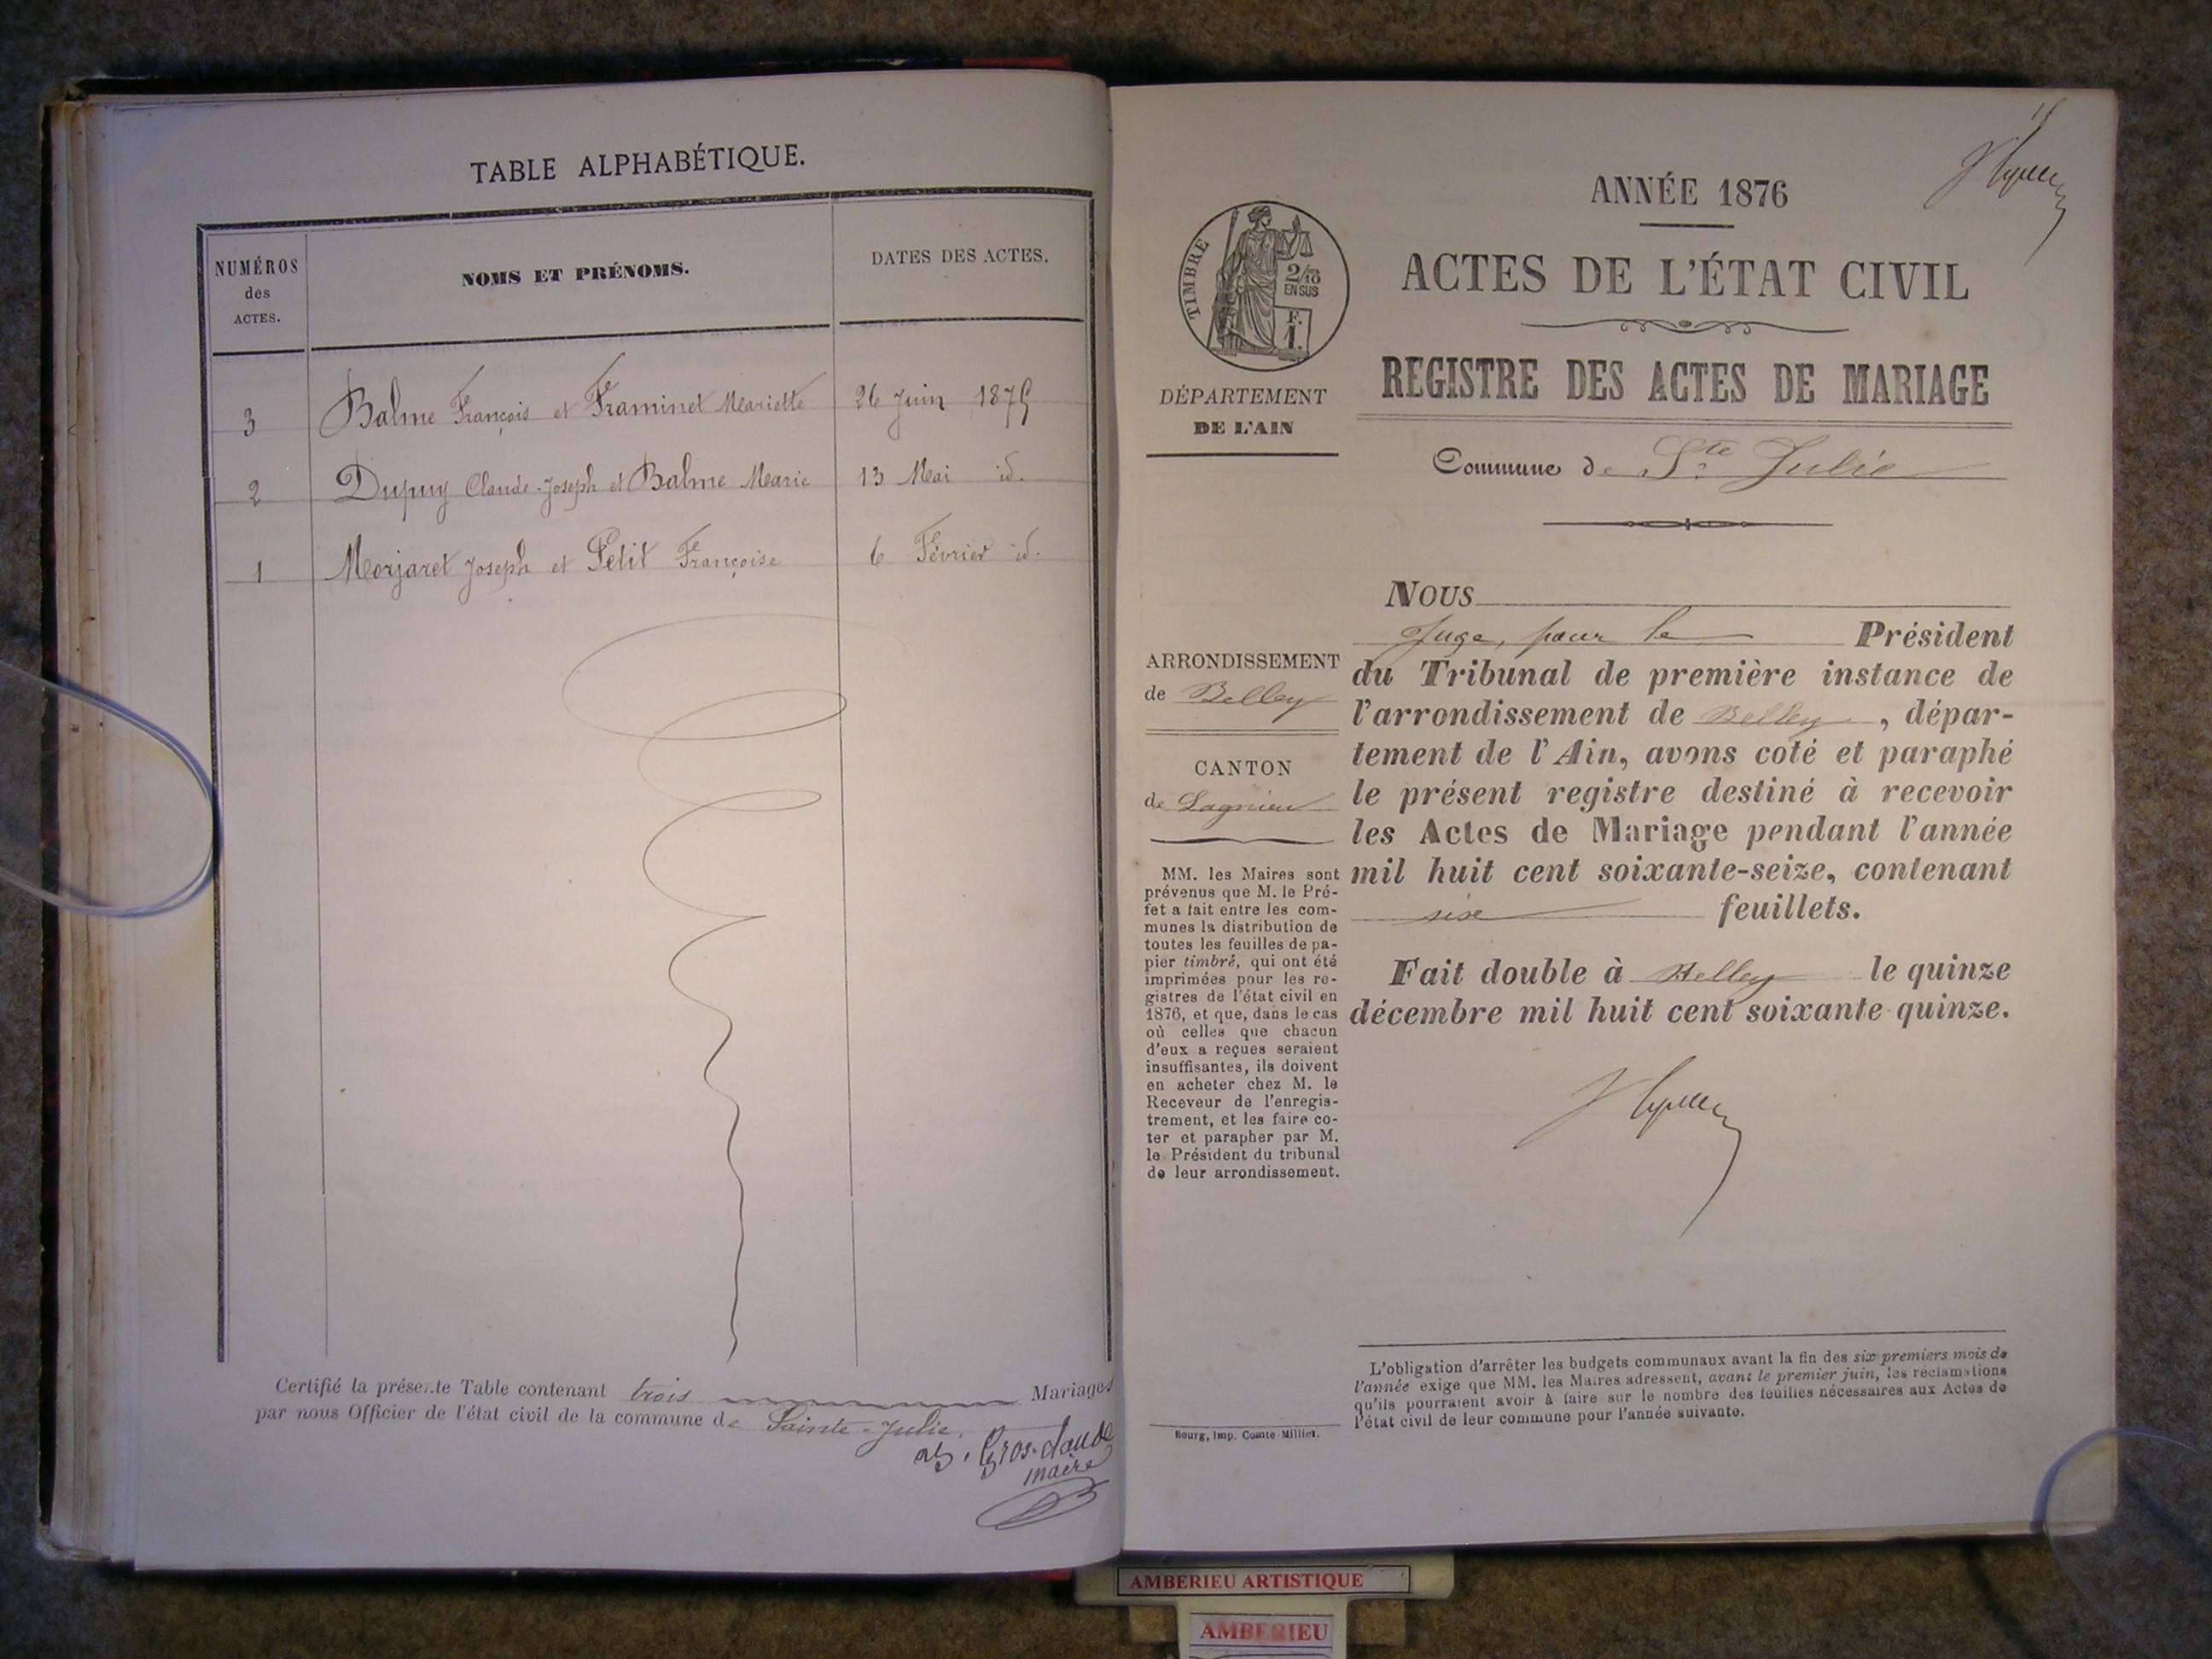 TABLE ALPHABÉTIQUE.
NUMÉROS
des
ACTES.
NOMS ET PRÉNOMS.
DATES DES ACTES.
3 Balme François et Framinet Mariette 26 Juin 1875
2 Dupuy Claude-Joseph et Balme Marie 13 Mai id.
1 Morjaret Joseph et Petit Françoise 6 Février id.
Certifié la présente Table contenant trois Mariages
par nous Officier de l'état civil de la commune de Sainte-Julie.
Gros-claude
maire
ANNÉE 1876
TIMBRE
2/10
EN SUS
F.
1.
ACTES DE L'ÉTAT CIVIL
REGISTRE DES ACTES DE MARIAGE
DÉPARTEMENT
DE L'AIN
Commune de Ste Julie
ARRONDISSEMENT
de Belley
CANTON
de Lagnieu
MM. les Maires sont
prévenus que M. le Pré-
fet a fait entre les com-
munes la distribution de
toutes les feuilles de pa-
pier timbré, qui ont été
imprimées pour les re-
gistres de l'état civil en
1876, et que, dans le cas
où celles que chacun
d'eux a reçues seraient
insuffisantes, ils doivent
en acheter chez M. le
Receveur de l'enregis-
trement, et les faire co-
ter et parapher par M.
le Président du tribunal
de leur arrondissement.
Bourg, Imp. Comte-Milliet.
NOUS
Juge, pour le Président
du Tribunal de première instance de
l'arrondissement de Belley, dépar-
tement de l'Ain, avons coté et paraphé
le présent registre destiné à recevoir
les Actes de Mariage pendant l'année
mil huit cent soixante-seize, contenant
six feuillets.
Fait double à Belley le quinze
décembre mil huit cent soixante-quinze.
L'obligation d'arrêter les budgets communaux avant la fin des six premiers mois de
l'année exige que MM. les Maires adressent, avant le premier juin, les réclamations
qu'ils pourraient avoir à faire sur le nombre des feuilles nécessaires aux Actes de
l'état civil de leur commune pour l'année suivante.
AMBERIEU ARTISTIQUE
AMBERIEU